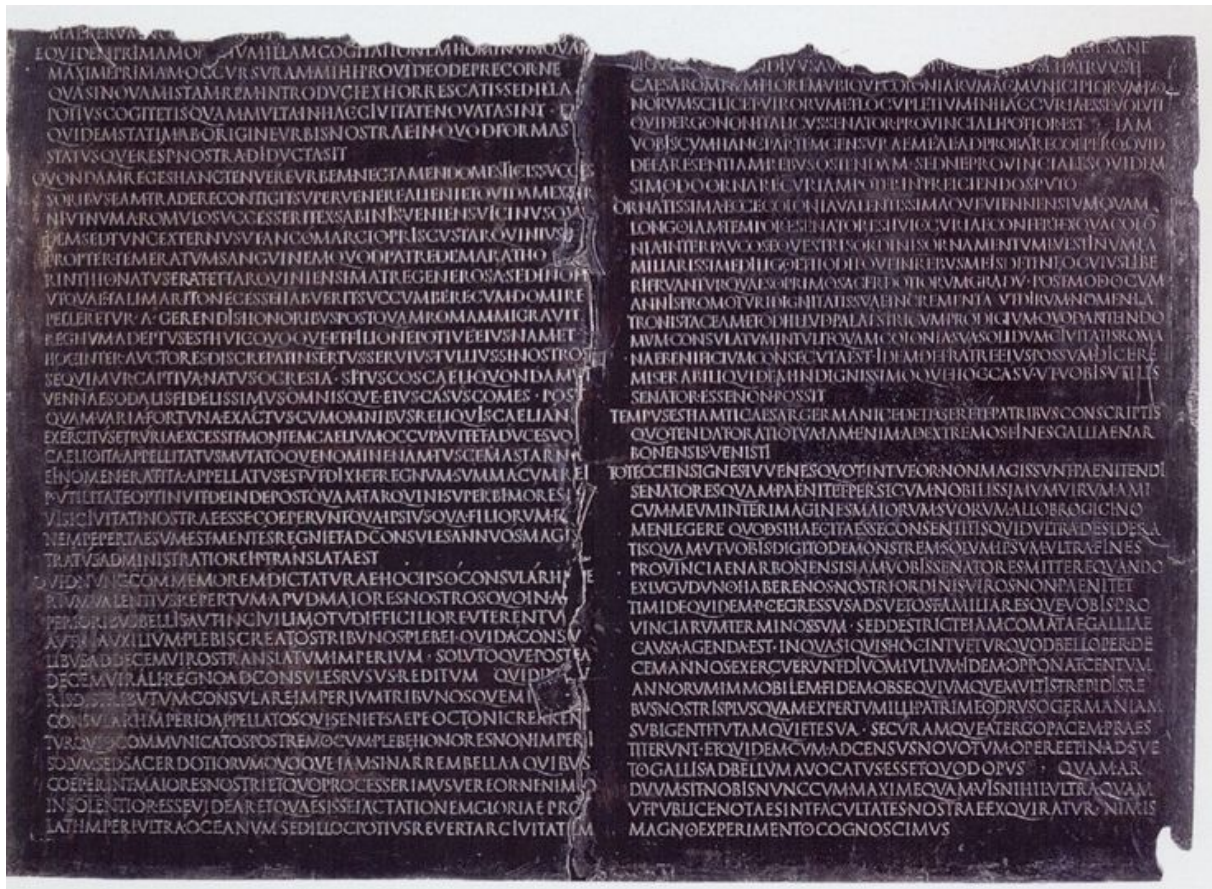 MAE RERVM NO
EQVIDEM PRIMAM OMNIVM ILLAM COGITATIONEM HOMINVM QVAM
MAXIME PRIMAM OCCVRSVRAM MIHI PROVIDEO DEPRECOR NE
QVASI NOVAM ISTAM REM INTRODVCI EXHORRESCATIS SED ILLA
POTIVS COGITETIS QVAM MVLTA IN HAC CIVITATE NOVATA SINT ET
QVIDEM STATIM AB ORIGINE VRBIS NOSTRAE IN QVOD FORMAS
STATVSQVE RES P NOSTRA DIDVCTA SIT
QVONDAM REGES HANC TENVERE VRBEM NEC TAMEN DOMESTICIS SVCCES
SORIBVS EAM TRADERE CONTIGIT SVPERVENERE ALIENI ET QVIDAM EXTER
NI VT NVMA ROMVLO SVCCESSERIT EX SABINIS VENIENS VICINVS QVI
DEM SED TVNC EXTERNVS VT ANCO MARCIO PRISCVS TARQVINIVS
PROPTER TEMERATVM SANGVINEM QVOD PATRE DEMARATHO
RINTHIO NATVS ERAT ET TARQVINIENSI MATRE GENEROSA SED INOPI
VT QVAE TALI MARITO NECESSE HABVERIT SVCCVMBERE CVM DOMI RE
PELLERETVR A GERENDIS HONORIBVS POSTQVAM ROMAM MIGRAVIT
REGNVM ADEPTVS EST HVIC QVOQVE ET FILIO NEPOTIVE EIVS NAM ET
HOC INTER AVCTORES DISCREPAT INSERTVS SERVIVS TVLLIVS SI NOSTROS
SEQVIMVR CAPTIVA NATVS OCRESIA SI TVSCOS CAELI QVONDAM VI
VENNAE SODALIS FIDELISSIMVS OMNISQVE EIVS CASVS COMES POST
QVAM VARIA FORTVNA EXACTVS CVM OMNIBVS RELIQVIS CAELIANI
EXERCITVS ETRVRIA EXCESSIT MONTEM CAELIVM OCCVPAVIT ET A DVCE SVO
CAELIO ITA APPELLITATVS MVTATOQVE NOMINE NAM TVSCE MASTARNA
EI NOMEN ERAT ITA APPELLATVS EST VT DIXI ET REGNVM SVMMA CVM REI
P VTILITATE OPTINVIT DEINDE POSTQVAM TARQVINI SVPERBI MORES IN
VISI CIVITATI NOSTRAE ESSE COEPERVNT QVA IPSIVS QVA FILIORVM EI
NEMPE PERTAESVM EST MENTES REGNI ET AD CONSVLES ANNVOS MAGIS
TRATVS ADMINISTRATIO REI P TRANSLATA EST
QVID NVNC COMMEMOREM DICTATVRAE HOC IPSO CONSVLARI IMPE
RIVM VALENTIVS REPERTVM APVD MAIORES NOSTROS QVO IN A
PERIORIBVS BELLIS AVT IN CIVILI MOTV DIFFICILIORE VTERENTVR
AVT IN AVXILIVM PLEBIS CREATOS TRIBVNOS PLEBEI QVID A CONSV
LIBVS AD DECEMVIROS TRANSLATVM IMPERIVM SOLVTOQVE POSTEA
DECEMVIRALI REGNO AD CONSVLES RVSVS REDITVM QVID IN
RIS DISTRIBVTVM CONSVLARE IMPERIVM TRIBVNOSQVE MI
CONSVLARI IMPERIO APPELLATOS QVI SENI ET SAEPE OCTONI CREAREN
TVR QVID COMMVNICATOS POSTREMO CVM PLEBE HONORES NON IMPERI
SOLVM SED SACERDOTIORVM QVOQVE IAM SI NARREM BELLA A QVIBVS
COEPERINT MAIORES NOSTRI ET QVO PROCESSERIMVS VEREOR NE NIMIO
INSOLENTIOR ESSE VIDEAR ET QVAESISSE IACTATIONEM GLORIAE PRO
LATI IMPERI VLTRA OCEANVM SED ILLOC POTIVS REVERTAR CIVITATEM
SANE
NOVO DIVVS AVG PATRVVS TI
CAESAR OMNEM FLOREM VBIQVE COLONIARVM AC MVNICIPIORVM BO
NORVM SCILICET VIRORVM ET LOCVPLETIVM IN HAC CVRIA ESSE VOLVIT
QVID ERGO NON ITALICVS SENATOR PROVINCIALI POTIOR EST IAM
VOBIS CVM HANC PARTEM CENSVRAE MEAE ADPROBARE COEPERO QVID
DE EA RE SENTIAM REBVS OSTENDAM SED NE PROVINCIALES QVIDEM
SI MODO ORNARE CVRIAM POTERINT REICIENDOS PVTO
ORNATISSIMA ECCE COLONIA VALENTISSIMAQVE VIENNENSIVM QVAM
LONGO IAM TEMPORE SENATORES HVIC CVRIAE CONFERT EX QVA COLO
NIA INTER PAVCOS EQVESTRIS ORDINIS ORNAMENTVM L VESTINVM FA
MILIARISSIME DILIGO ET HODIEQVE IN REBVS MEIS DETINEO CVIVS LIBE
RI FRVANTVR QVAESO PRIMO SACERDOTIORVM GRADV POST MODO CVM
ANNIS PROMOTVRI DIGNITATIS SVAE INCREMENTA VT DIRVM NOMEN LA
TRONIS TACEAM ET ODI ILLVD PALAESTRICVM PRODIGIVM QVOD ANTE IN DO
MVM CONSVLATVM INTVLIT QVAM COLONIA SVA SOLIDVM CIVITATIS ROMA
NAE BENIFICIVM CONSECVTA EST IDEM DE FRATRE EIVS POSSVM DICERE
MISERABILI QVIDEM INDIGNISSIMOQVE HOC CASV VT VOBIS VTILIS
SENATOR ESSE NON POSSIT
TEMPVS EST IAM TI CAESAR GERMANICE DETEGERE TE PATRIBVS CONSCRIPTIS
QVO TENDAT ORATIO TVA IAM ENIM AD EXTREMOS FINES GALLIAE NAR
BONENSIS VENISTI
TOT ECCE INSIGNES IVVENES QVOT INTVEOR NON MAGIS SVNT PAENITENDI
SENATORES QVAM PAENITET PERSICVM NOBILISSIMVM VIRVM AMI
CVM MEVM INTER IMAGINES MAIORVM SVORVM ALLOBROGICI NO
MEN LEGERE QVOD SI HAEC ITA ESSE CONSENTITIS QVID VLTRA DESIDERA
TIS QVAM VT VOBIS DIGITO DEMONSTREM SOLVM IPSVM VLTRA FINES
PROVINCIAE NARBONENSIS IAM VOBIS SENATORES MITTERE QVANDO
EX LVGVDVNO HABERE NOS NOSTRI ORDINIS VIROS NON PAENITET
TIMIDE QVIDEM P C EGRESSVS ADSVETOS FAMILIARESQVE VOBIS PRO
VINCIARVM TERMINOS SVM SED DESTRICTE IAM COMATAE GALLIAE
CAVSA AGENDA EST IN QVA SI QVIS HOC INTVETVR QVOD BELLO PER DE
CEM ANNOS EXERCVERVNT DIVOM IVLIVM IDEM OPPONAT CENTVM
ANNORVM IMMOBILEM FIDEM OBSEQVIVMQVE MVLTIS TREPIDIS RE
BVS NOSTRIS PLVS QVAM EXPERTVM ILLI PATRI MEO DRVSO GERMANIAM
SVBIGENTI TVTAM QVIETE SVA SECVRAMQVE A TERGO PACEM PRAES
TITERVNT ET QVIDEM CVM AD CENSVS NOVO TVM OPERE ET INADSVE
TO GALLIS AD BELLVM AVOCATVS ESSET QVOD OPVS QVAM AR
DVVM SIT NOBIS NVNC CVM MAXIME QVAMVIS NIHIL VLTRA QVAM
VT PVBLICE NOTAE SINT FACVLTATES NOSTRAE EXQVIRATVR NIMIS
MAGNO EXPERIMENTO COGNOSCIMVS